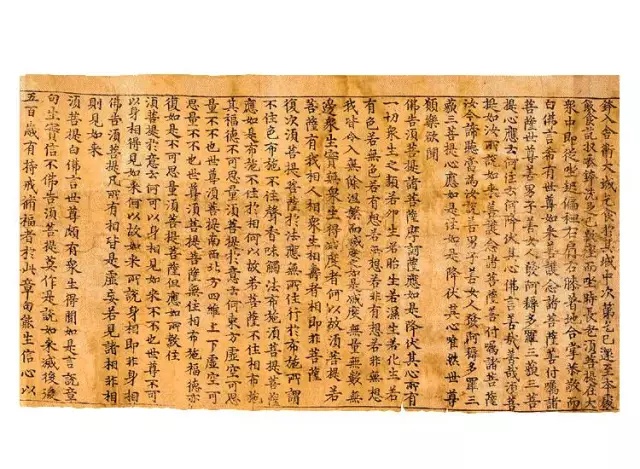 鉢入舍衛大城乞食於其城中次第乞已還至本處
飯食訖收衣鉢洗足已敷座而坐時長老須菩提在大
衆中即從座起偏袒右肩右膝著地合掌恭敬而
白佛言希有世尊如來善護念諸菩薩善付囑諸
菩薩世尊善男子善女人發阿耨多羅三藐三菩
提心應云何住云何降伏其心佛言善哉善哉須菩
提如汝所說如來善護念諸菩薩善付囑諸菩薩
汝今諦聽當為汝說善男子善女人發阿耨多羅三
藐三菩提心應如是住如是降伏其心唯然世尊
願樂欲聞
佛告須菩提諸菩薩摩訶薩應如是降伏其心所有
一切衆生之類若卵生若胎生若濕生若化生若
有色若無色若有想若無想若非有想非無想
我皆令入無餘涅槃而滅度之如是滅度無量無數無
邊衆生實無衆生得滅度者何以故須菩提若
菩薩有我相人相衆生相壽者相即非菩薩
復次須菩提菩薩於法應無所住行於布施所謂
不住色布施不住聲香味觸法布施須菩提菩薩
應如是布施不住於相何以故若菩薩不住相布施
其福德不可思量須菩提於意云何東方虛空可思
量不不也世尊須菩提南西北方四維上下虛空可
思量不不也世尊須菩提菩薩無住相布施福德亦
復如是不可思量須菩提菩薩但應如所教住
須菩提於意云何可以身相見如來不不也世尊不可
以身相得見如來何以故如來所說身相即非身相
佛告須菩提凡所有相皆是虛妄若見諸相非相
則見如來
須菩提白佛言世尊頗有衆生得聞如是言說章
句生實信不佛告須菩提莫作是說如來滅後後
五百歲有持戒脩福者於此章句能生信心以